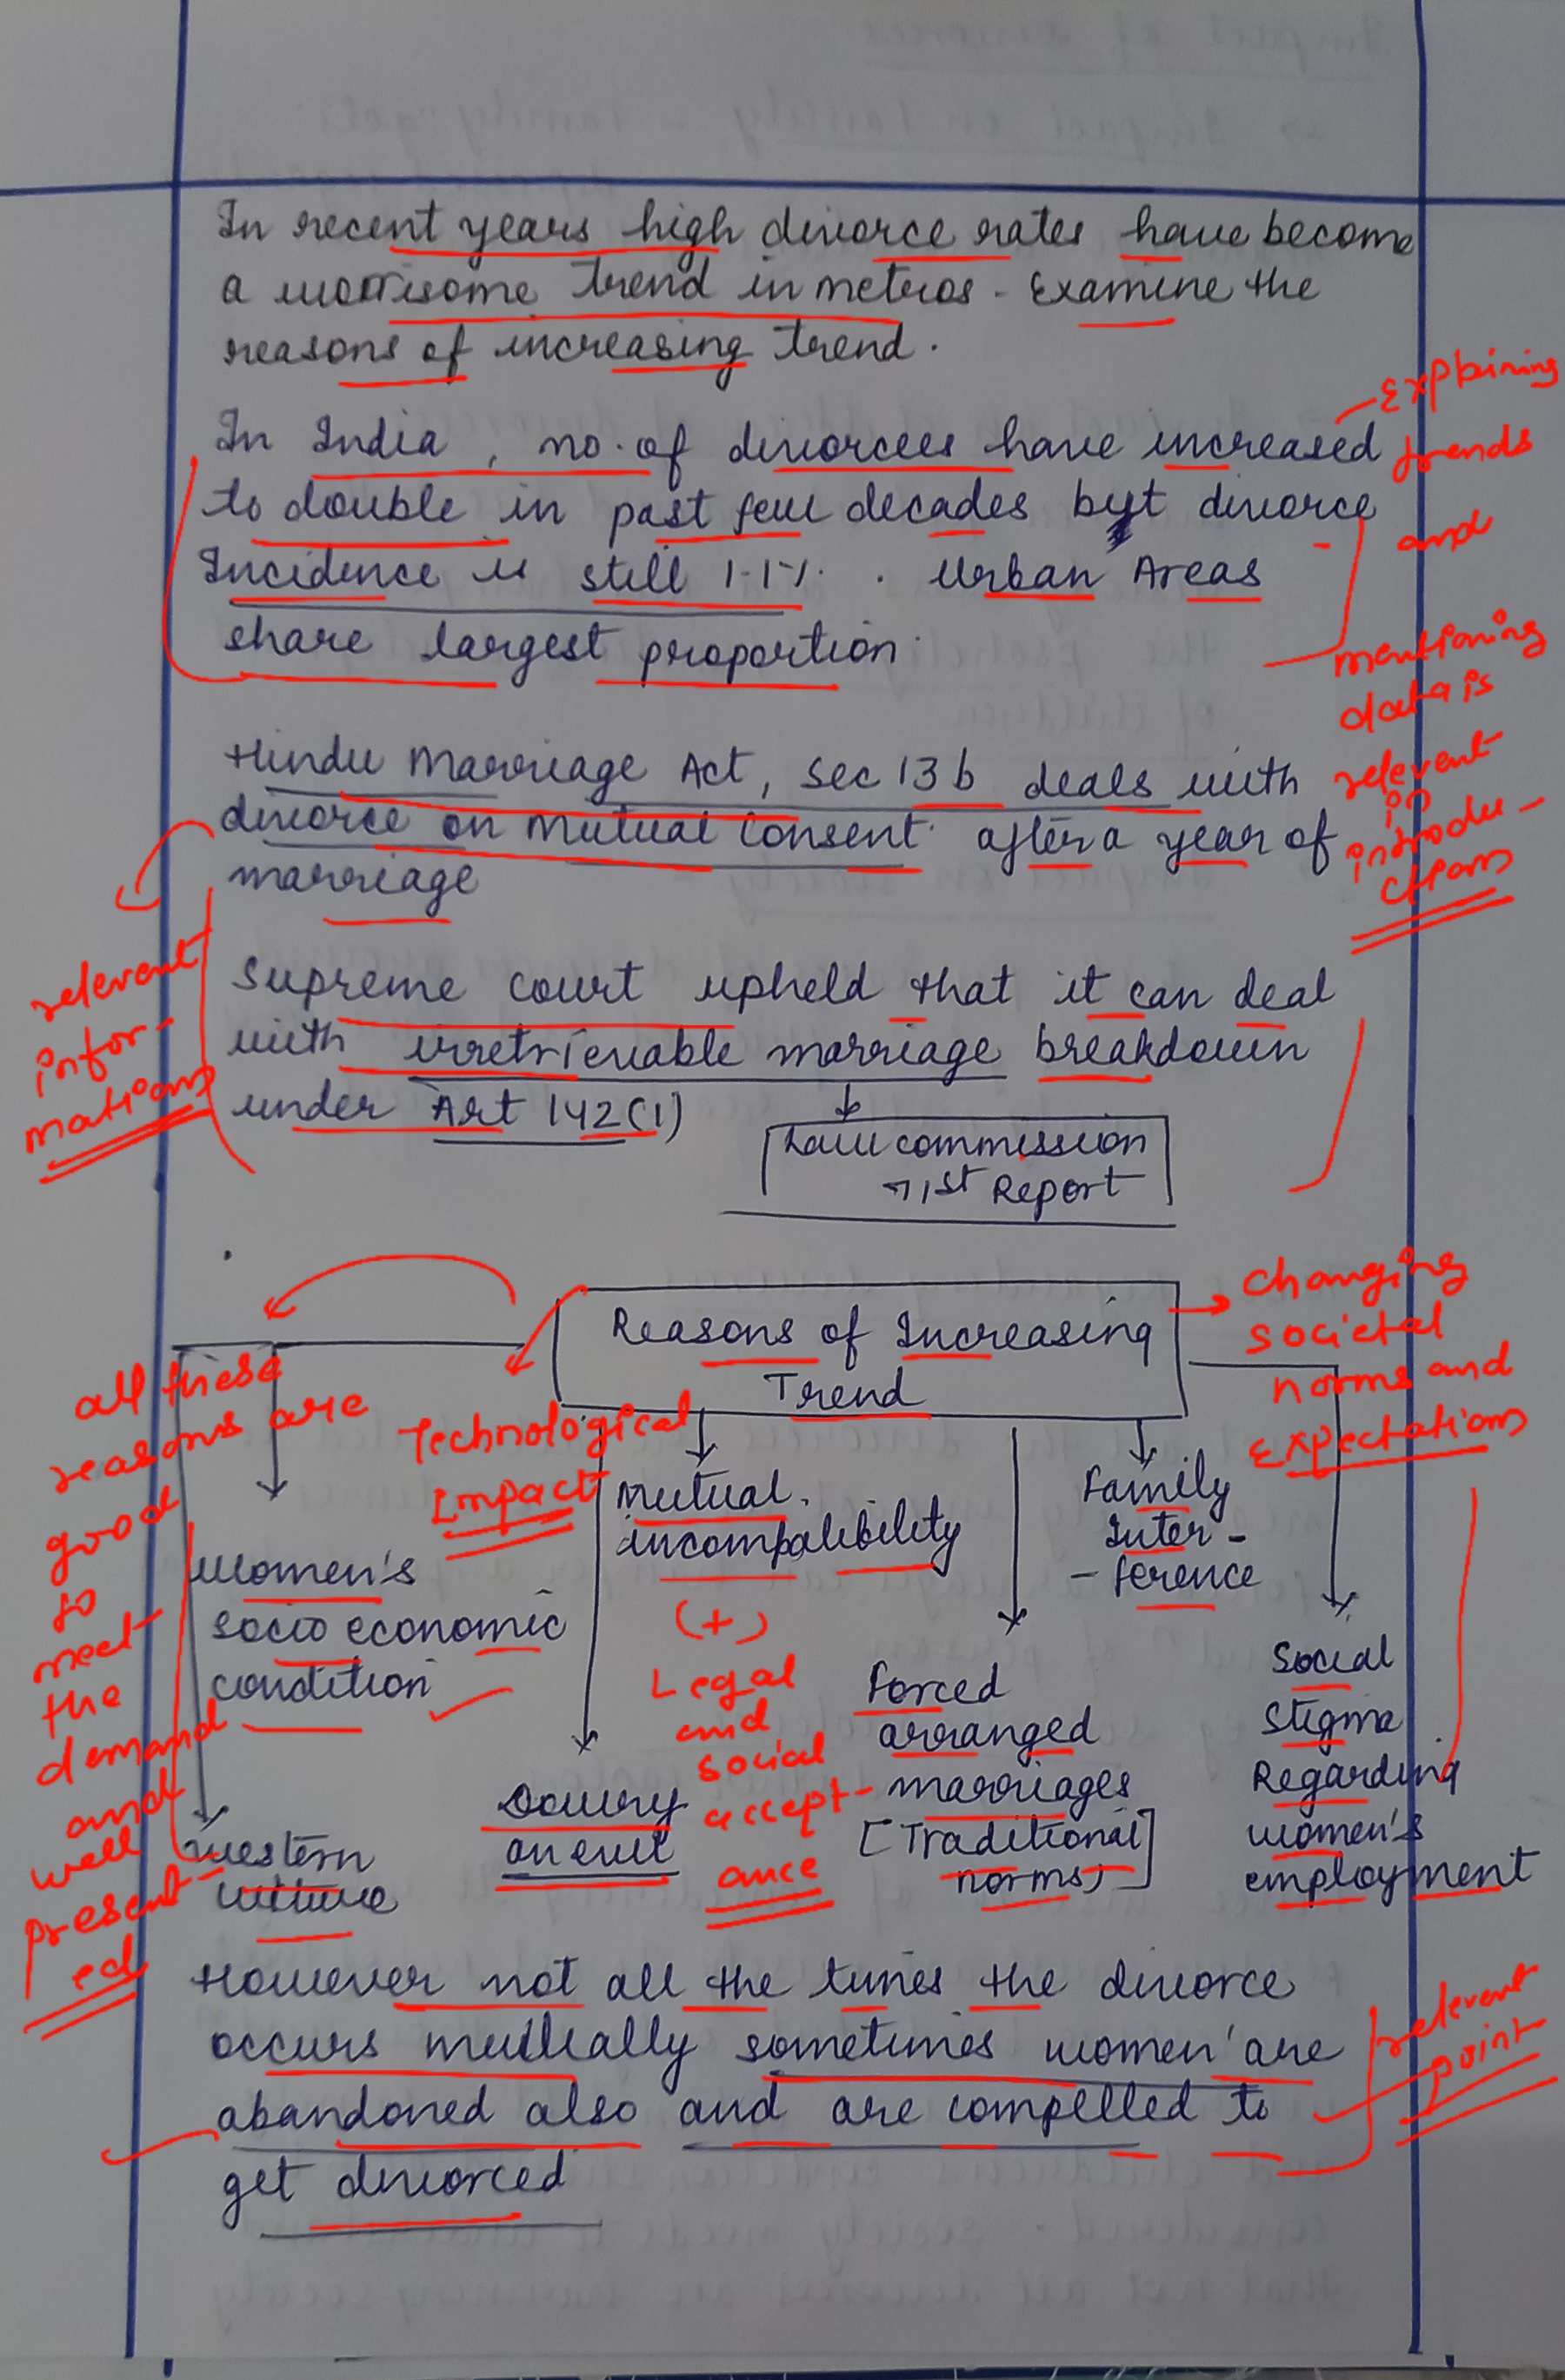 In recent years high divorce rates have become
a worrisome trend in metros - Examine the
reasons of increasing trend.
Explaining
trends
and
mentioning
data is
relevent
in
introdu-
ctions
In India, no. of divorcees have increased
to double in past few decades but divorce
Incidence is still 1.1%. Urban Areas
share largest proportion.
Hindu Marriage Act, Sec 13 b deals with
divorce on Mutual Consent after a year of
marriage
relevent
infor-
mations
Supreme court upheld that it can deal
with irretrievable marriage breakdown
under Art 142(1)
Law commission
71st Report
Reasons of Increasing
Trend
Changing
societal
norms and
Expectations
all these
reasons are
good
to
meet
the
demand
and
well
present-
ed
Technological
Impact
Women's
socio economic
condition
Western
culture
Dowry
an evil
Mutual
incompatibility
(+)
Legal
and
social
accept-
ance
Forced
arranged
marriages
[Traditional
norms]
Family
Inter-
-ference
Social
Stigma
Regarding
women's
employment
However not all the times the divorce
occurs mutually sometimes women are
abandoned also and are compelled to
get divorced
relevent
point